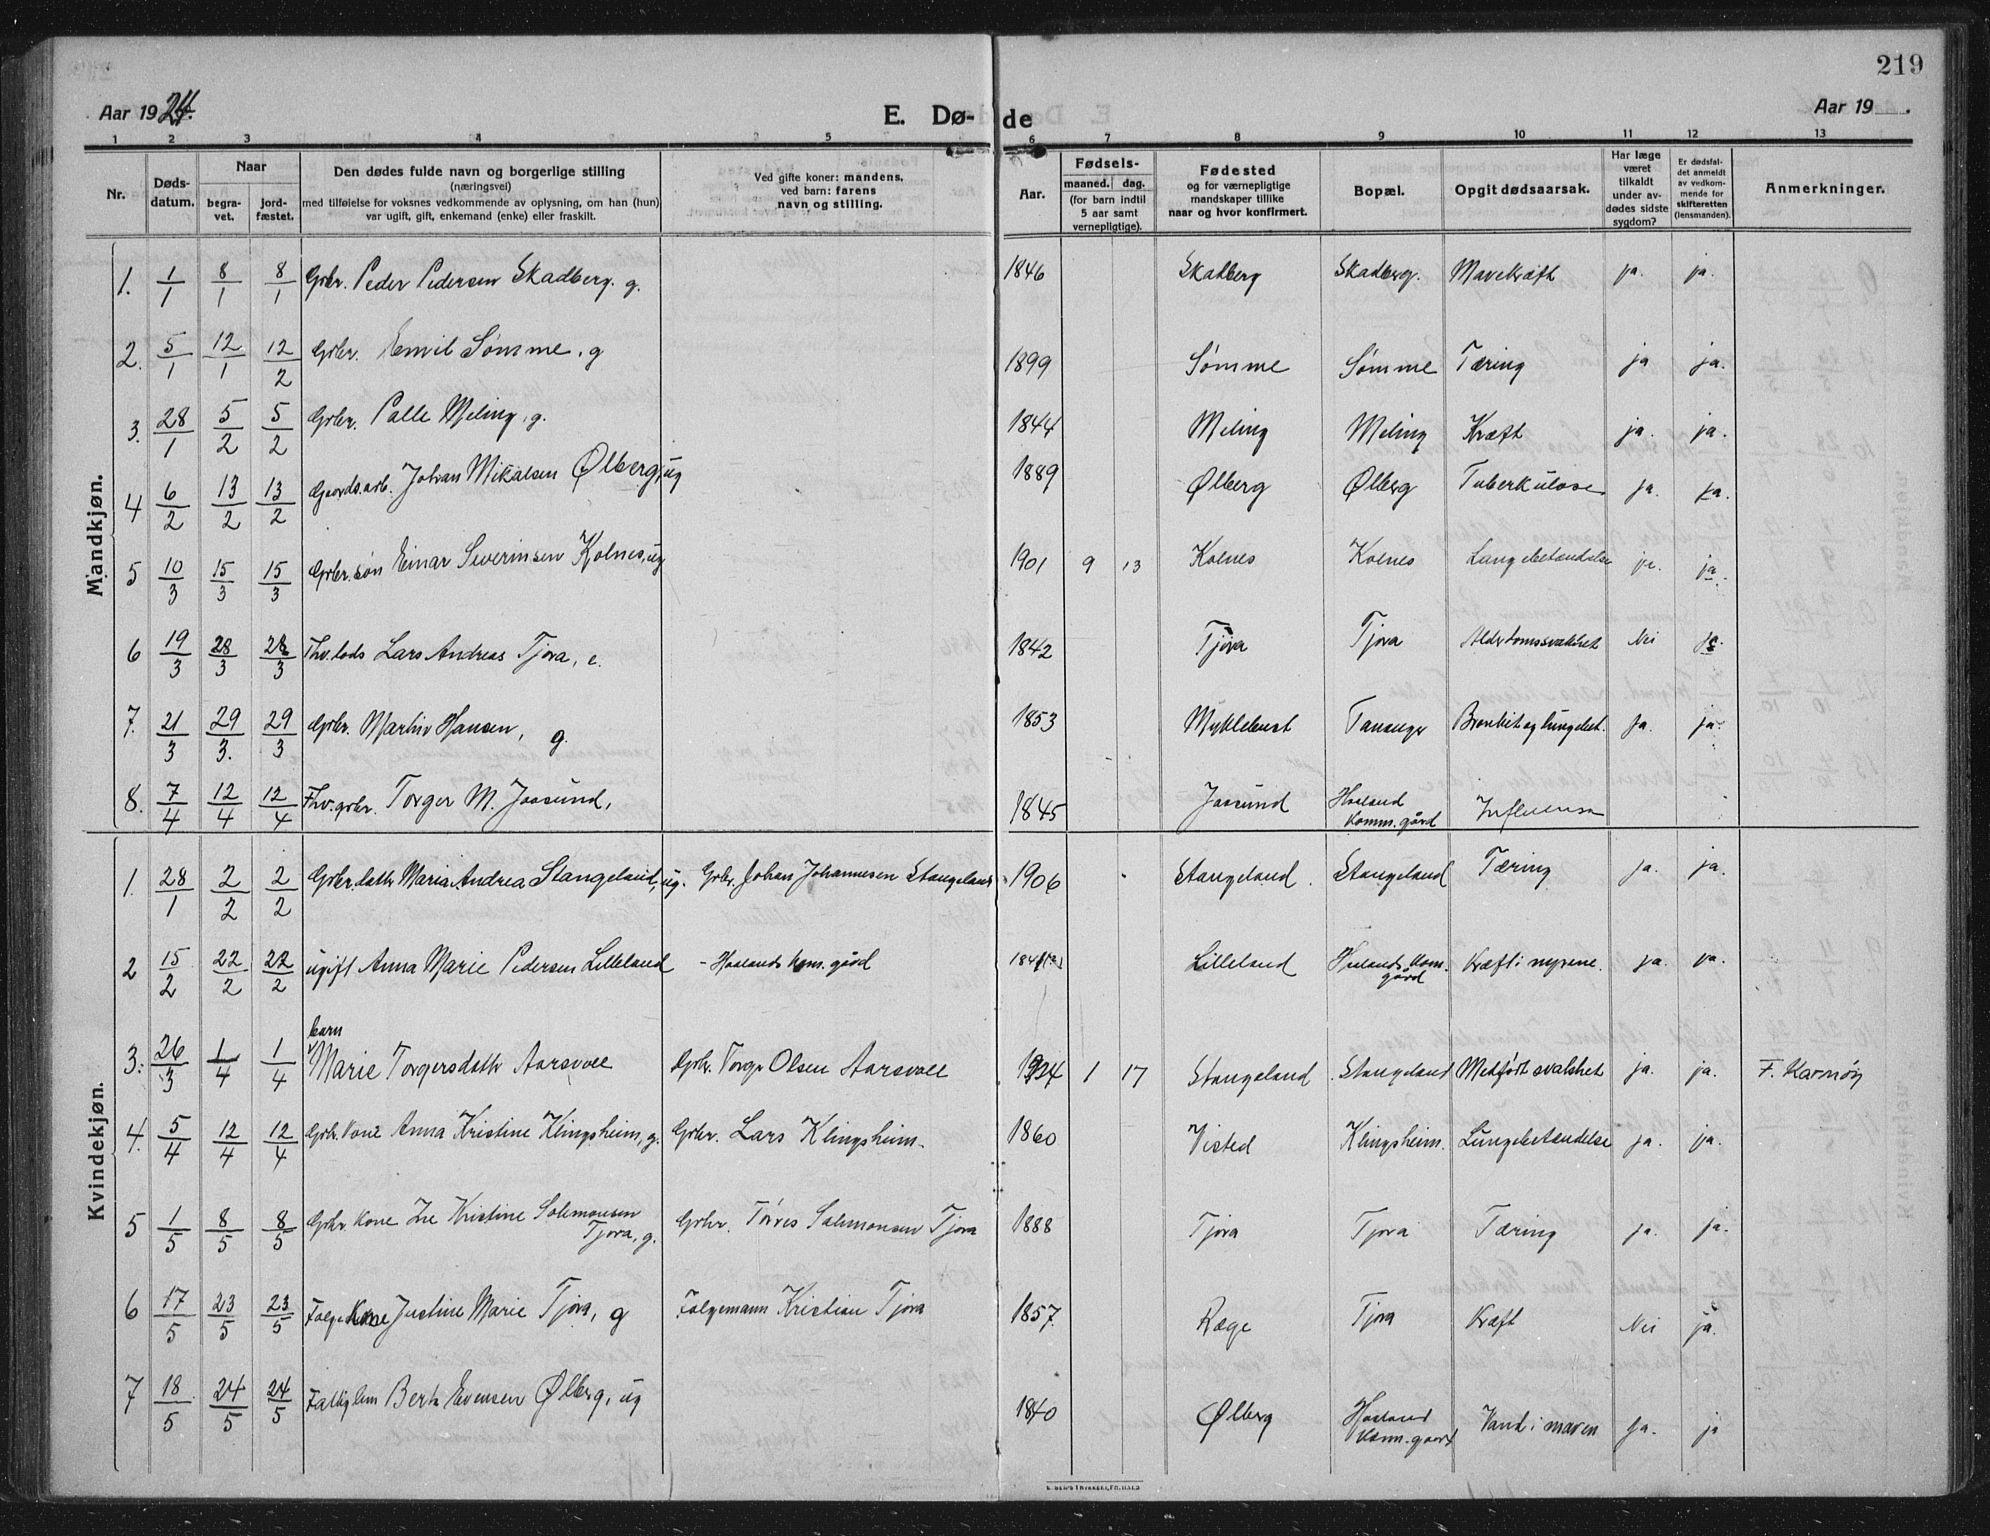 219
Aar 1924.
E. Dø-
de
Aar 19 .
1 2 3 4 5 6 7 8 9 10 11 12 13
Nr.
Døds-
datum.
Naar
begra-
vet.
jord-
fæstet.
Den dødes fulde navn og borgerlige stilling
(næringsvei)
med tilføielse for voksnes vedkommende av oplysning, om han (hun)
var ugift, gift, enkemand (enke) eller fraskilt.
Ved gifte koner: mandens,
ved barn: farens
navn og stilling.
Aar.
Fødsels-
maaned. dag.
(for barn indtil
5 aar samt
vernepligtige).
Fødested
og for værnepligtige
mandskaper tillike
naar og hvor konfirmert.
Bopæl.
Opgit dødsaarsak.
Har læge
været
tilkaldt
under av-
dødes sidste
sygdom?
Er dødsfal-
det anmeldt
av vedkom-
mende for
skifteretten
(lensmanden).
Anmerkninger.
Mandkjøn.
1. 1/1 8/1 8/1 Grbr. Peder Pedersen Skadberg. g. 1846 Skadberg Skadberg. Mavekræft ja. ja.
2. 5/1 12/1 12/2 Grbr. Emil Sømme, g 1899 Sømme Sømme Tæring ja ja.
3. 28/1 5/2 5/2 Grbr. Palle Meling, g. 1844 Meling Meling Kræft ja. ja.
4 6/2 13/2 13/2 Gaardsarb. Johan Mikalsen Ølberg, ug 1889 Ølberg Ølberg Tuberkulose ja. ja.
5 10/3 15/3 15/3 Grbr. søn Einar Severinsen Kolnes, ug 1901 9 13 Kolnes Kolnes Lungebetændelse ja. ja.
6 19/3 28/3 28/3 Fhv. lods Lars Andreas Tjora, e. 1842 Tjora Tjora Alderdomssvakhet Nei ja
7. 21/3 29/3. 29/3 Grbr. Martin Hansen, g. 1853 Myklebust Tananger Bronkit og lungebet. ja. ja.
8. 7/4 12/4 12/4 Fhv. grbr. Torger M. Jaasund, 1845 Jaasund Haaland Komm. gård Influensa
Kvindekjøn.
1. 28/1 2/2 2/2 Grbr. datter Maria Andrea Stangeland, ug. Grbr. Johan Johannesen Stangeland 1906 Stangeland. Stangeland Tæring ja. ja.
2 15/2 22/2 22/2 ugift Anna Marie Pedersen Lilleland - Haalands kom. gård Lilleland Haalands kom. gård Kræft i nyrene. ja. ja.
3. 26/3 1/4 1/4 barn Marie Torgersdatter Aarsvoll Grbr. Torger Olsen Aarsvoll 1924 1 17 Stangeland Stangeland Medfødt svakhet ja. ja. F. Karmøy
4. 5/4 12/4 12/4 Grbr. kone Anna Kristine Klingsheim, g. Grbr. Lars Klingsheim. 1860 Visted Klingsheim. Lungebetændelse ja. ja.
5 1/5 8/5 8/5 Grbr. kone Kristine Salomonsen Tjora, g. Grbr. Tòres Salomonsen Tjora 1888 Tjora Tjora Tæring ja. ja.
6 17/5 23/5 23/5 Folge Kone Justine Marie Tjora, g Folgemann Kristian Tjora 1857. Ræge Tjora Kræft Nei ja.
7 18/5 24/5 24/5 Fattiglem Berta Evensen Ølberg, ug 1840 Ølberg Haaland Komm. gaard Vand i maven ja. ja